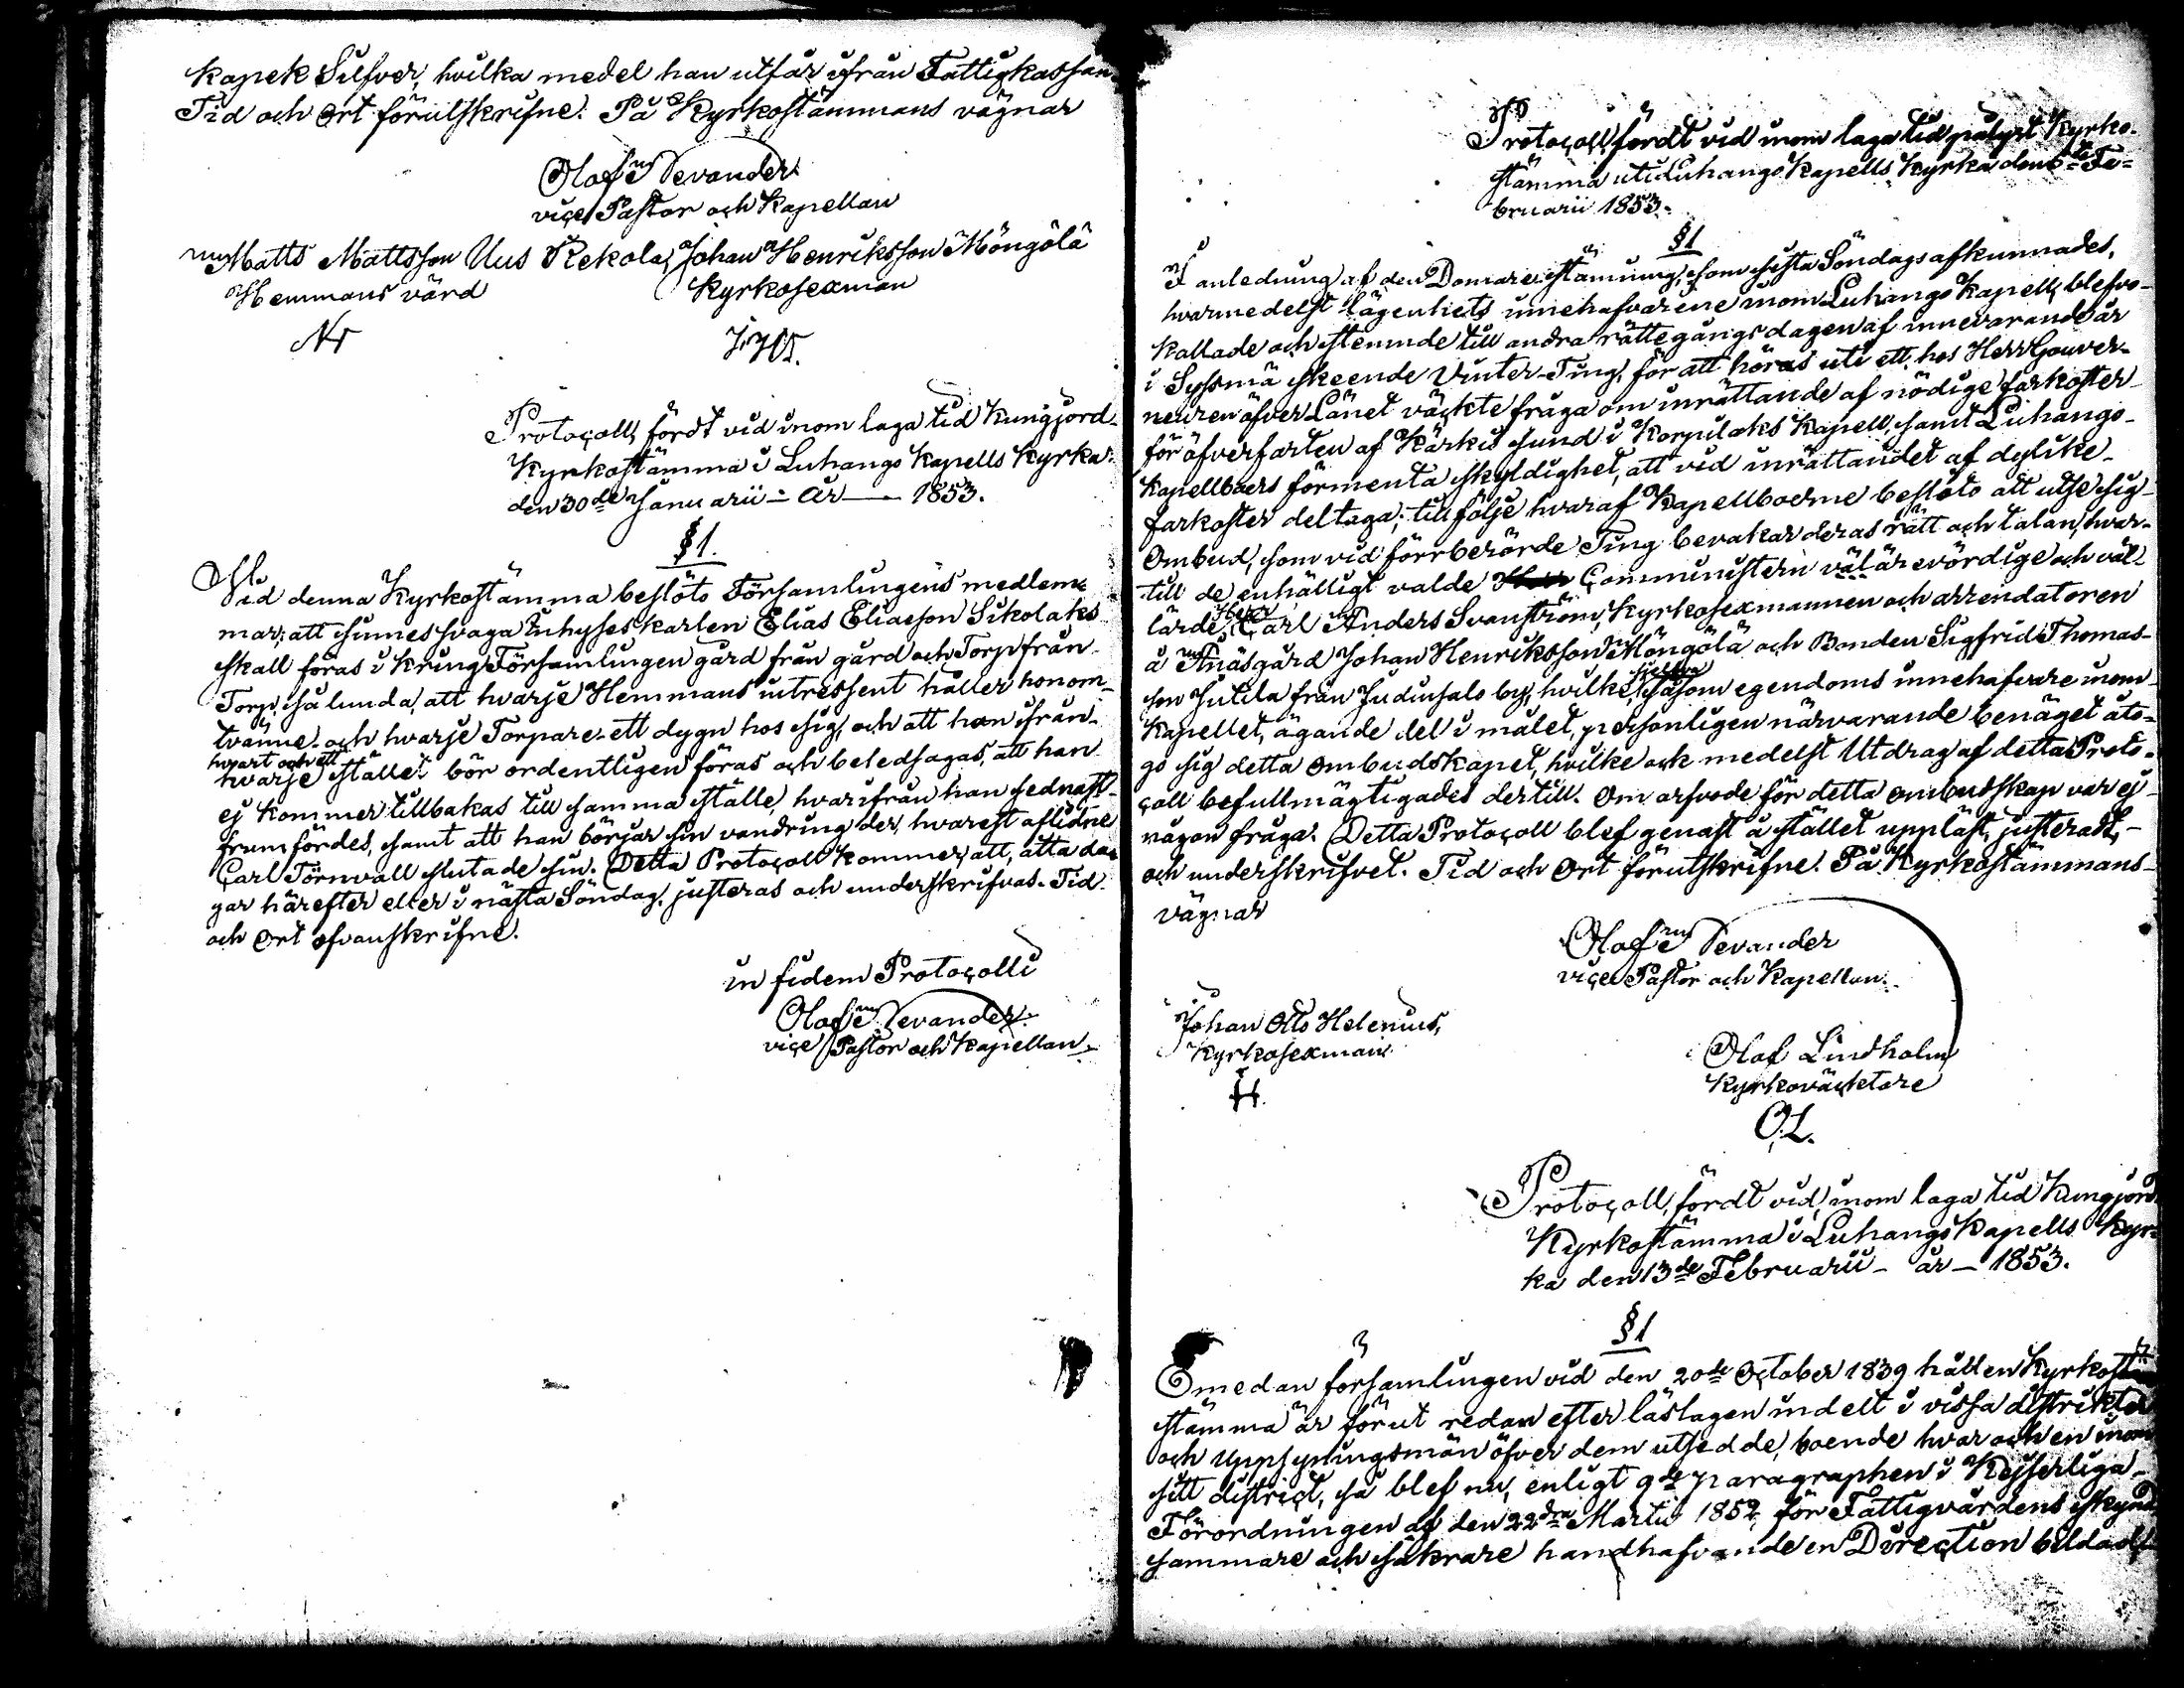 Kapek Silfver, hvilka medel han utfår ifrån Fattigkassan.
Tid och Ort förutskrifne. På Kyrkostämmans vägnar
Olof Levander
viçe Pastor och Kapellan
Matts Mattsson Uus Kekola, Johan Henriksson Möngölä
Hemmans värd Kyrkosexman
Protoçoll, fördt vid inom laga tid Kungjord
Kyrkostämma i Luhango Kapells Kyrka
den 30de Januarii - år - 1853.
§ 1.
Vid denna Kyrkostämma beslöto Församlingens medlem-
mar, att sinnessvaga Inhyseskarlen Elias Eliaeson Sikolaks
skall föras i kring Församlingen gård från gård och Torp från
Torp, sålunda, att hvarje Hemmans intressent håller honom
tvänne - och hvarje Torpare - ett dygn hos sig, och att han ifrån
hvart och ett
hvarje ställe bör ordentligen föras och beledsagas, att han
ej kommer tillbakas till samma ställe, hvarifrån han sednast
framfördes, samt att han börjar sin vandring der, hvarest aflidne
Çarl Törnvall slutade sin. Detta Protoçoll kommer att, åtta da-
gar härefter eller i nästa Söndag, justeras och underskrifvas. Tid
och Ort ofvanskrifne.
in fidem Protoçolli
Olof Levander
viçe Pastor och Kapellan
Protoçoll, fördt vid inom laga tid pålyst Kyrko-
stämma uti Luhango Kapells Kyrka den 6te Fe-
bruarii 1853.
§ 1
I anledning af den Domare stämning, som sista Söndag afkunnades,
hvarmedelst lägenhets innehafvarene inom Luhango Kapell, blefvo
kallade och stemnde till andra rättegångsdagen af innevarande år
i Syssmä skeende Vinter-Ting, för att höras uti ett hos Herr Gouver-
neuren öfver Länet väçkte fråga om inrättande af nödige farkoster
för öfverfarten af Kärkis sund i Korpilaks Kapell, samt Luhango
Kapellboers förmenta skyldighet, att vid inrättandet af dylike
farkoster deltaga; till följe hvaraf Kapellboerne beslöto att utse sig
Ombud, som vid förrberörde Ting bevakar deras rätt och talan, hvar-
till de enhälligt valde Çomministern välärevördige och väl-
lärde Herr Çarl Anders Svanström, Kyrkosexmannen och arrendatoren
å Anäsgård Johan Henriksson Möngölä och Bonden Sigfrid Thomas-
son Jutila från Judinsalo by, hvilke, såsom egendoms innehafvare inom
Kapellet, ägande del i målet, personligen närvarande benäget åto-
go sig detta ombudskapet, hvilke ock medelst Utdrag af detta Proto-
çoll befullmägtigades dertill. Om arfvode för detta ombudskap var ej
någon fråga. Detta Protoçoll blef genast å stället uppläst, justeradt,
och underskrifvet. Tid och Ort förutskrifne. På Kyrkostämmans
vägnar
Olof Levander
viçe Pastor och Kapellan.
Johan Otto Helenius,
Kyrkosexman
Olof Lindholm
Kyrkoväçktare
O.L.
Protoçoll, fördt vid, inom laga tid Kungjord
Kyrkostämma i Luhango Kapells Kyr-
ka den 13de Februarii - år - 1853.
§ 1
Emedan församlingen vid den 20de Oçtober 1839 hållen Kyrko
stämma är förut redan efter läslagen indelt i vissa distrikter
och Uppsyningsmän öfver dem utsedde, boende hvar och en inom
sitt distriçt, så blef nu, enligt 9de paragraphen i Kejserliga
Förordningen af den 22dra Martii 1852 för Fattigvårdens skynd
sammare och säkrare handhafvande en Direçtion bildad,